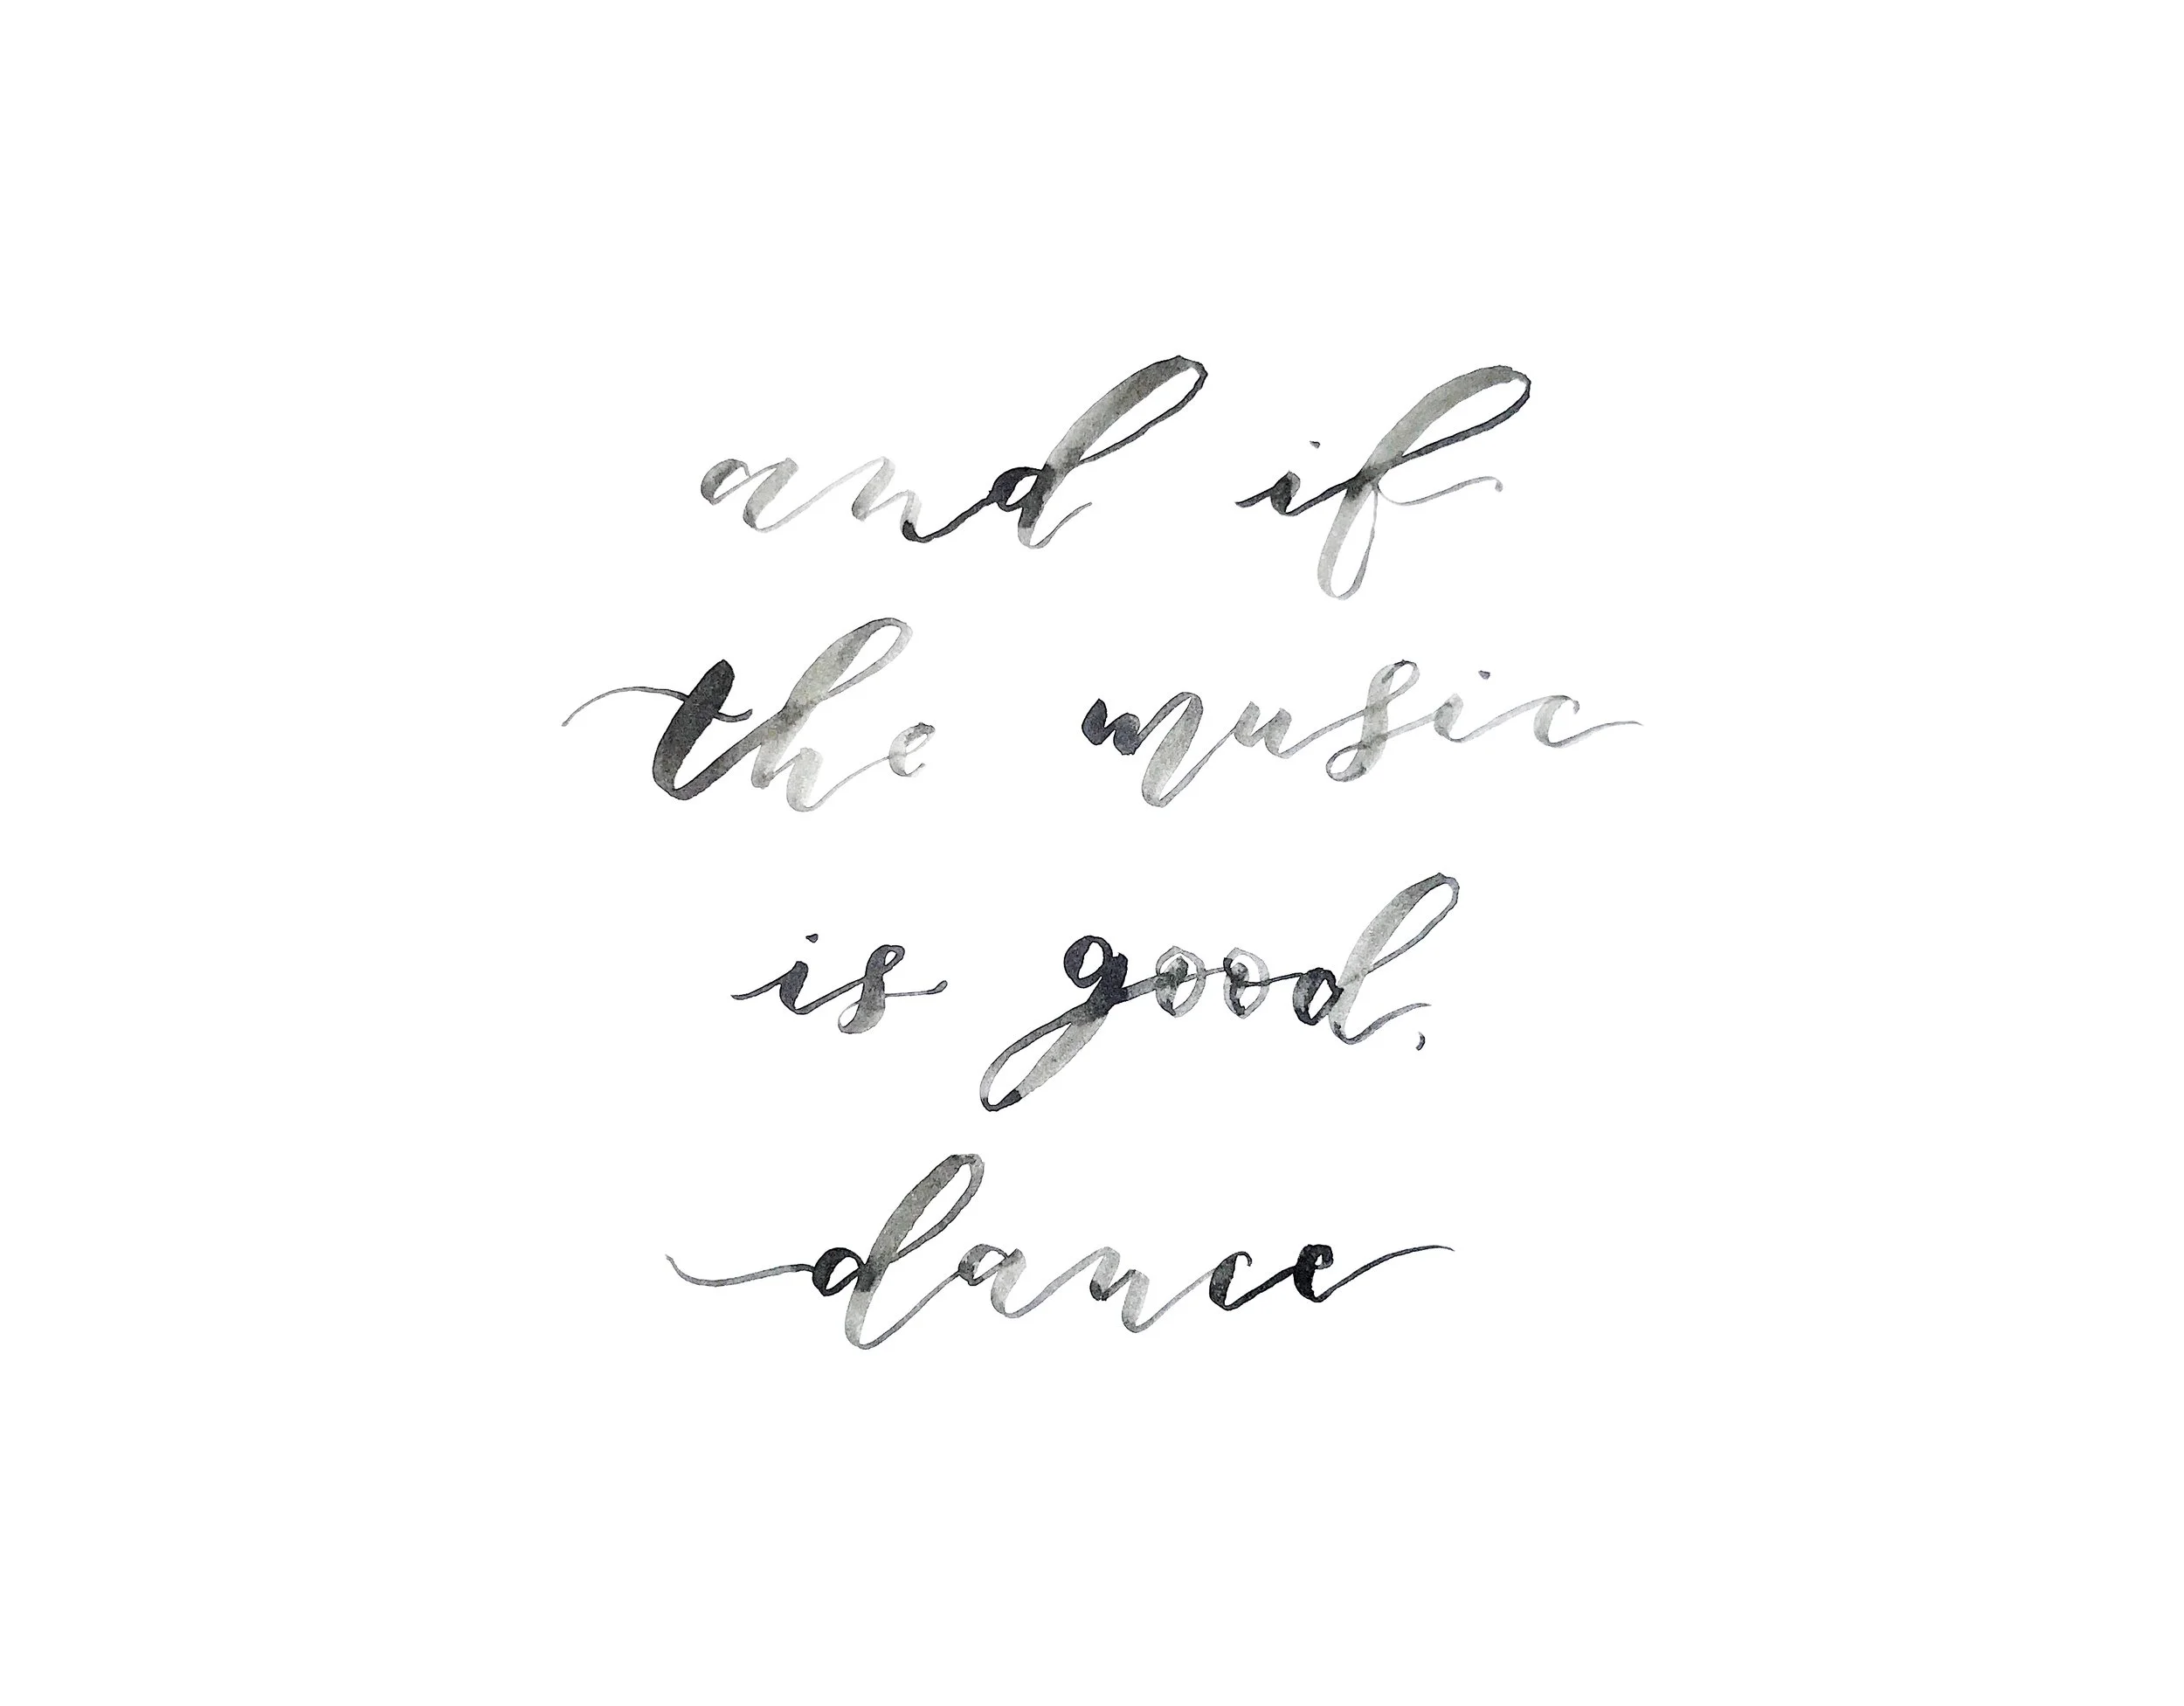 and if
the music
is good,
dance